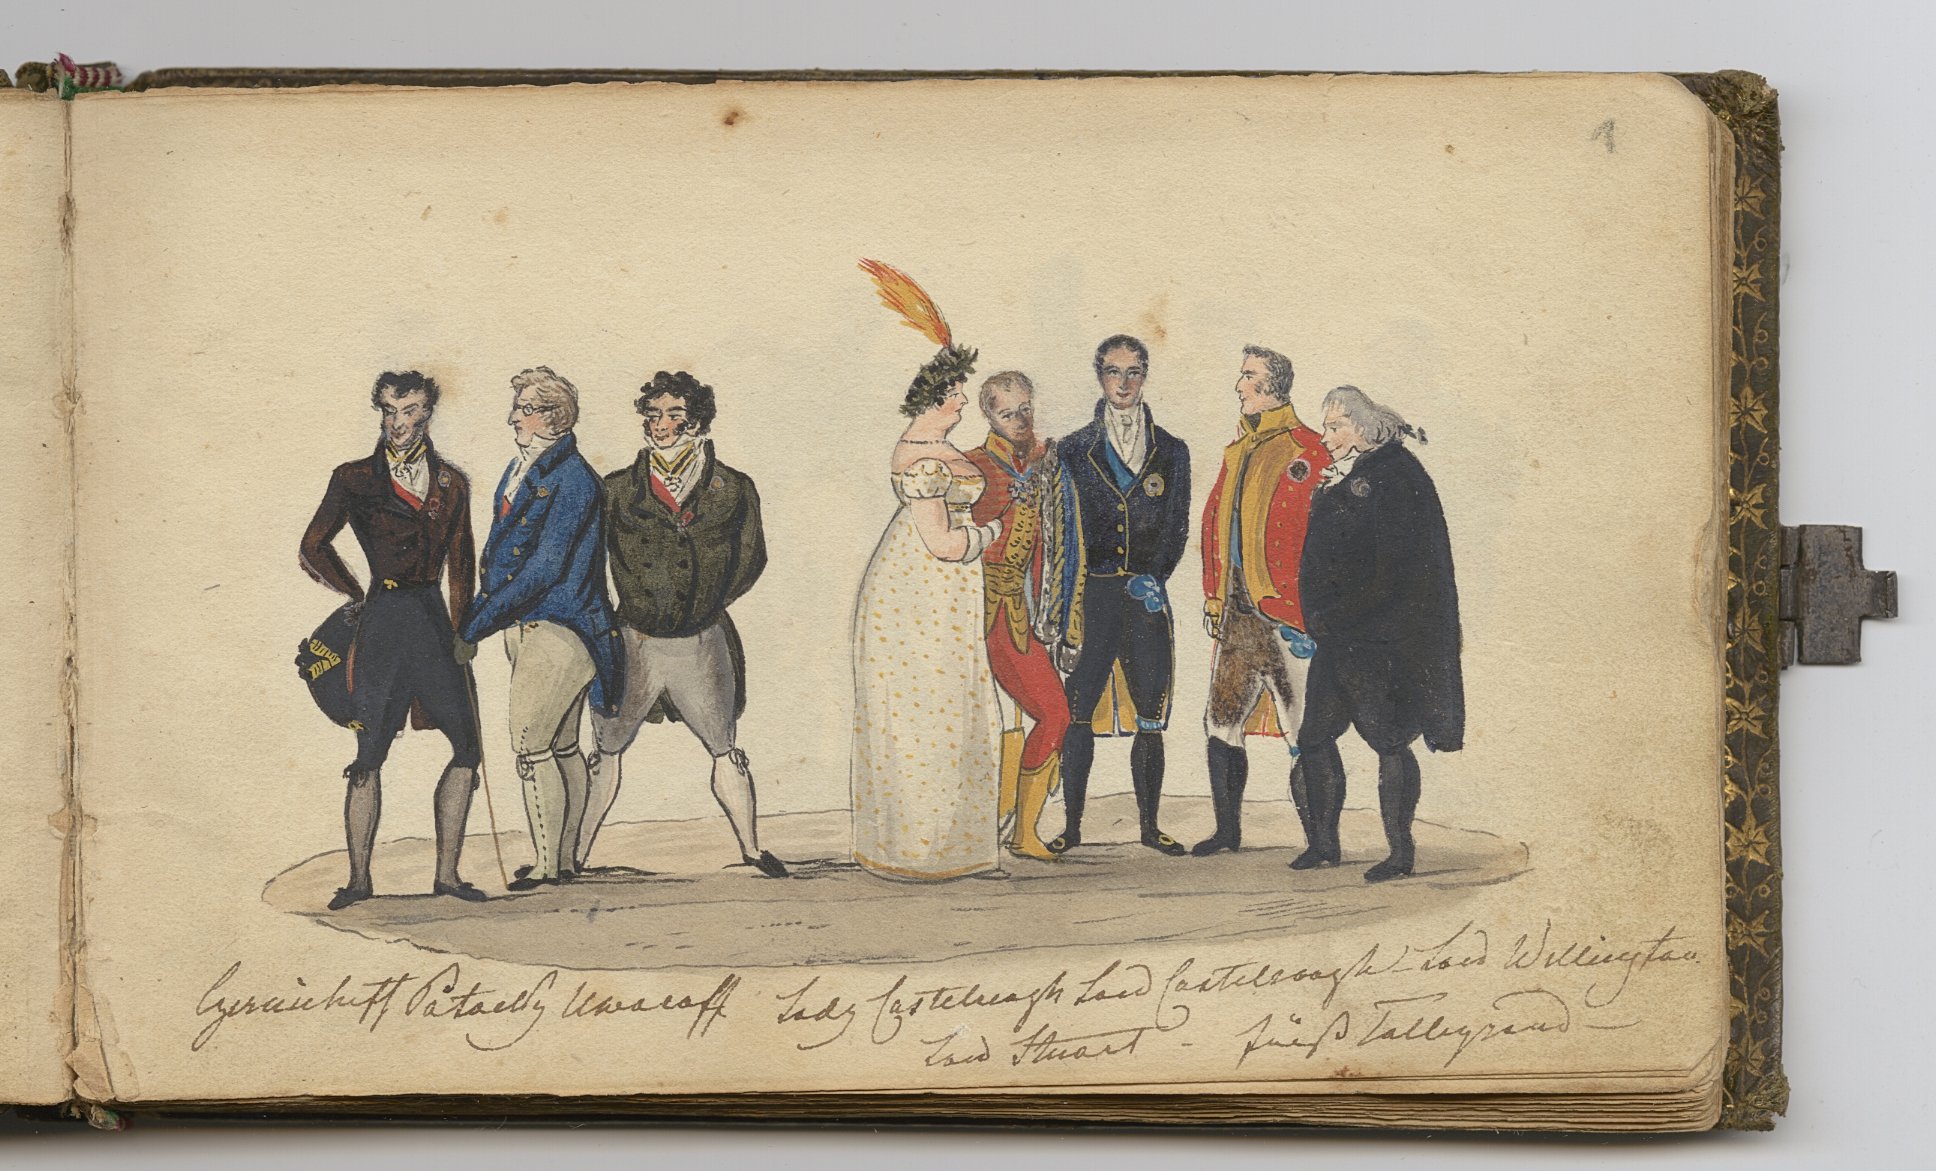 1
Czernicheff Potocky Uwaroff Lady Castelreagh Lord Castelreagh – Lord Wellington.
Lord Stuart – Fürst Talleyrand –